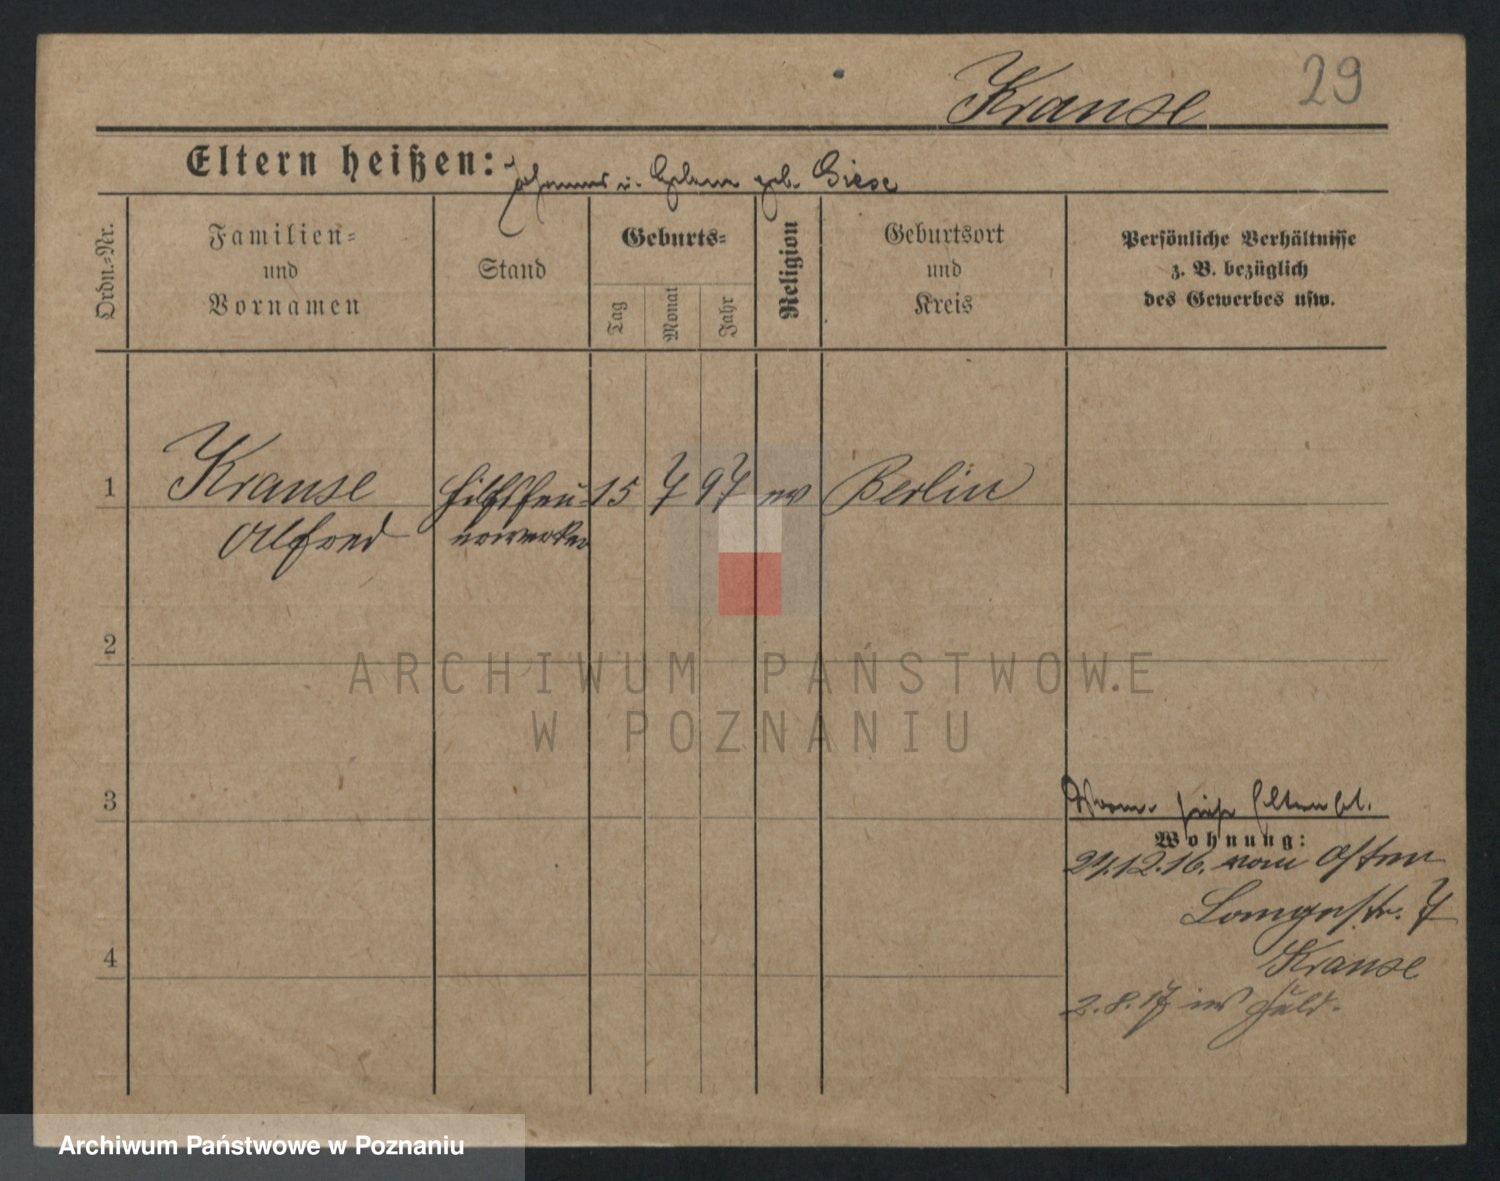 29
Krause
Eltern heißen: Johannes u. Helene geb. Giese
Ordn.=Nr.
Familien=
und
Vornamen
Stand
Geburts=
Tag
Monat
Jahr
Religion
Geburtsort
und
Kreis
Persönliche Verhältnisse
z. B. bezüglich
des Gewerbes usw.
1 Krause Hilfsfeu= 15 7 97 ev Berlin
Alfred erwerker
2
ARCHIWUM PAŃSTWOWE
W POZNANIU
3
Wohnung:
24.12.16. vom Osten
Langestr. 7
4
Krause
2.8.17 ins Feld.
Archiwum Państwowe w Poznaniu